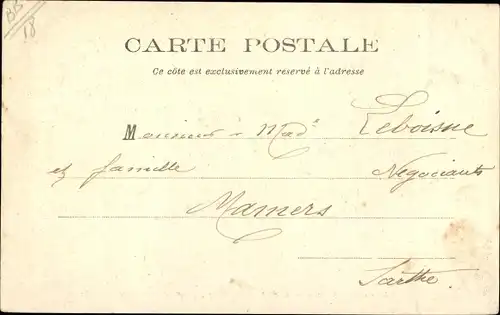 BB
18
CARTE POSTALE
Ce côté est exclusivement reservé à l'adresse
Monsieur - Mad.e Leboisne
et famille Négociants
Mamers
Sarthe